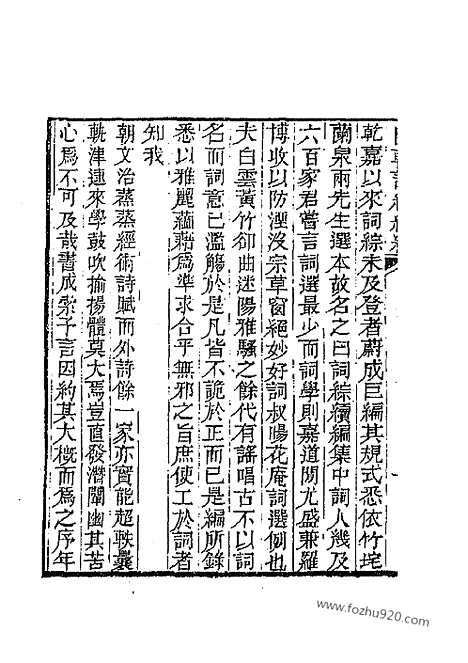 乾嘉以來詞綜未及登者蔚成巨編其規式悉依竹垞
蘭泉兩先生選本故名之曰詞綜續編集中詞人幾及
六百家君嘗言詞選最少而詞學則嘉道間尤盛兼羅
博收以防湮沒宗草窗絕妙好詞叔暘花庵詞選例也
夫白雲黃竹卻曲迷陽雅騷之餘代有謠唱古不以詞
名而詞意已濫觴於是凡皆不詭於正而已是編所錄
悉以雅麗蘊藉為準求合乎無邪之旨庶使工於詞者
知我
朝文治蒸蒸經術詩賦而外詩餘一家亦實能超軼曩
軌津逮來學鼓吹揄揚體莫大焉豈直發潛闡幽其苦
心為不可及哉書成索予言因約其大概而為之序年
www.fozhu920.com